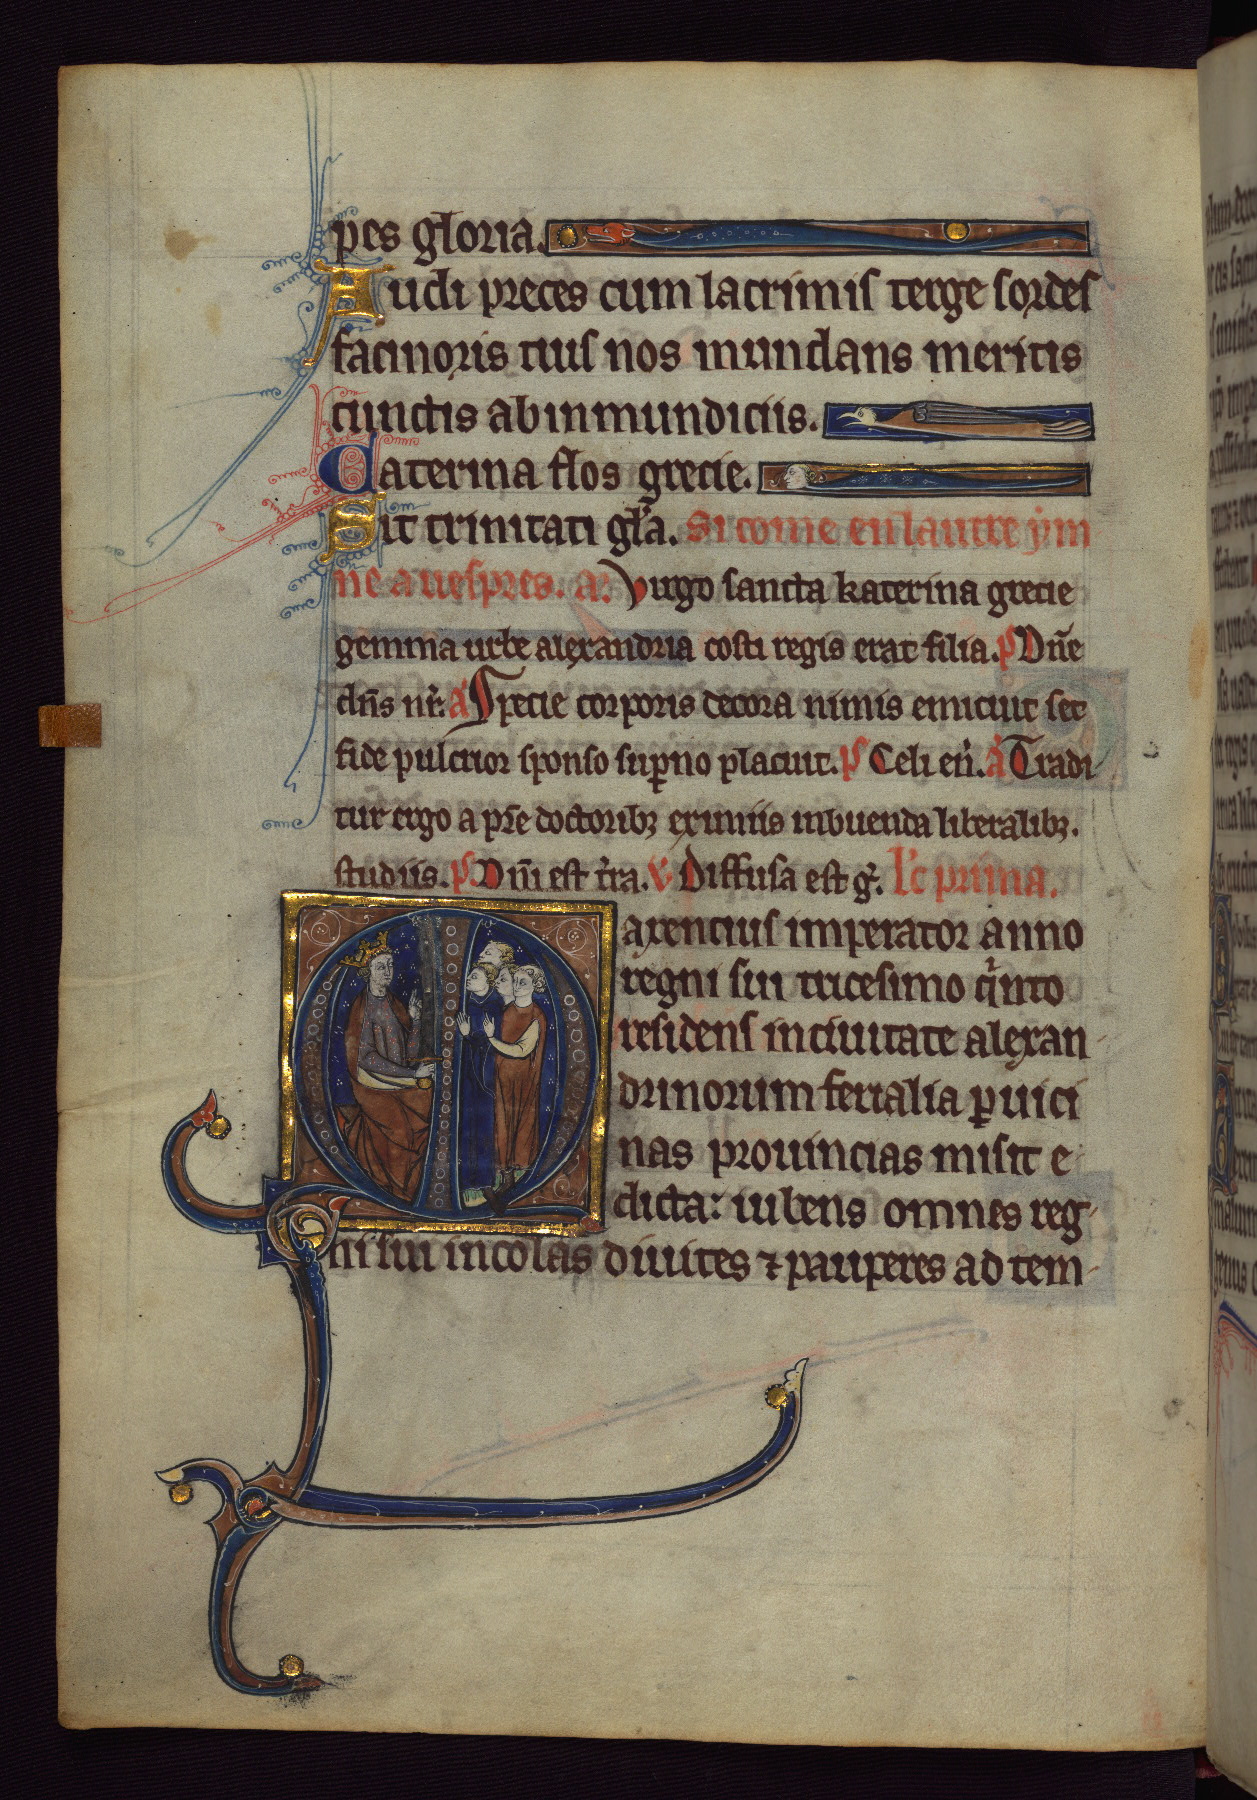 pes gloria.
Audi preces cum lacrimis terge sordes
facinoris tuis nos mundans meritis
cunctis abinmundiciis.
Caterina flos grecie.
Sit trinitati gl'a. Si come en lautre ym
ne a vespres. a. Virgo sancta katerina grecie
gemma urbe alexandria costi regis erat filia. ps Dñe
dñs nr̃. a Specie corporis decora nimis emicuit set
fide pulcrior sponso sup̱no placuit. ps Celi en̄. a Tradi
tur ergo a pr̃e doctoribꝫ eximiis inbuenda liberalibꝫ.
studiis. ps Dñi est t'ra. v Diffusa est gr̃. l'c prima.
Maxencius imperator anno
regni sui tricesimo q'nto
residens in ciuitate alexan
drinorum ferialia ꝑ uici
nas prouincias misit e
dicta: iubens omnes reg
ni sui incolas diuites ⁊ pauperes ad tem